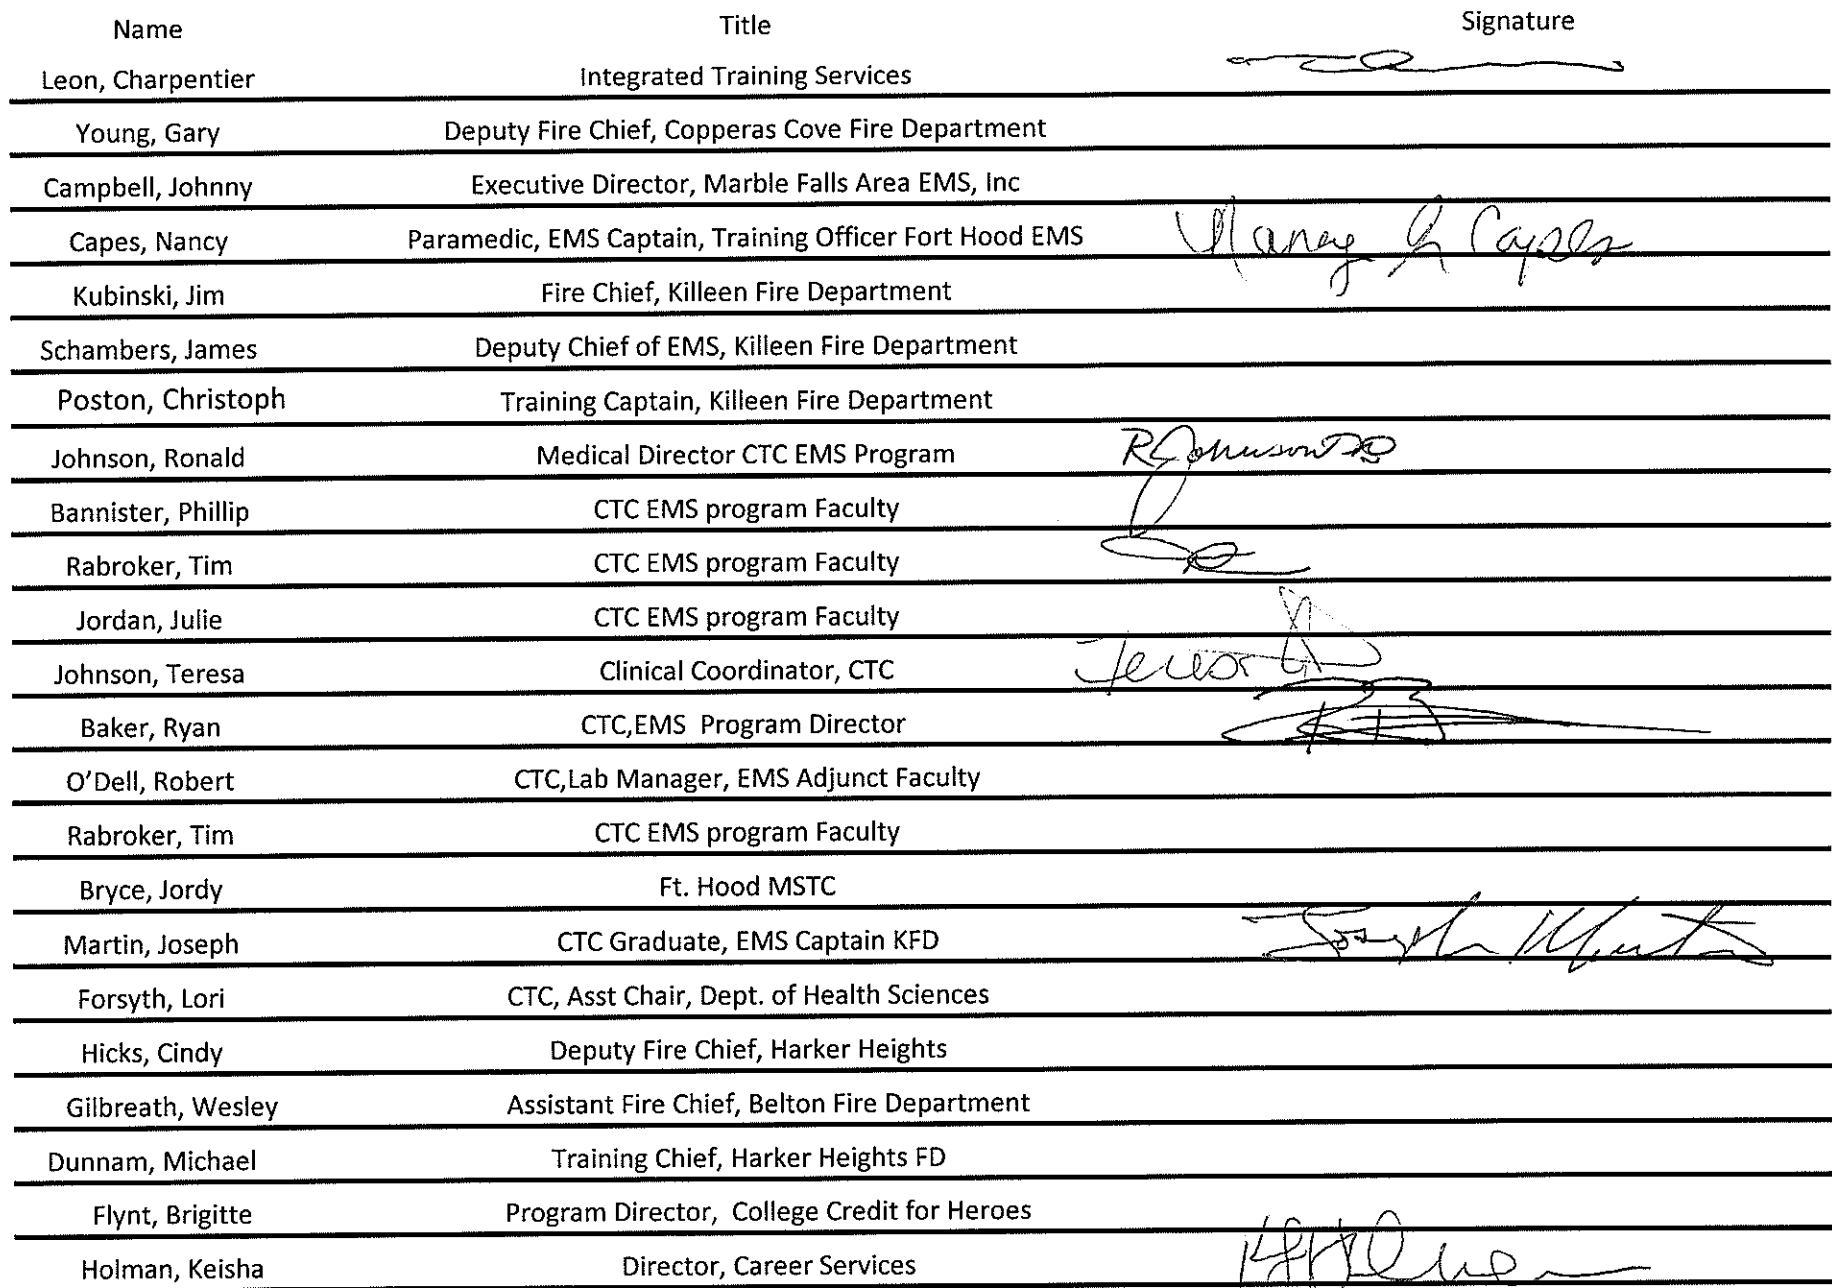 Name Title Signature
Leon, Charpentier Integrated Training Services
Young, Gary Deputy Fire Chief, Copperas Cove Fire Department
Campbell, Johnny Executive Director, Marble Falls Area EMS, Inc
Capes, Nancy Paramedic, EMS Captain, Training Officer Fort Hood EMS Nancy G Capes
Kubinski, Jim Fire Chief, Killeen Fire Department
Schambers, James Deputy Chief of EMS, Killeen Fire Department
Poston, Christoph Training Captain, Killeen Fire Department
Johnson, Ronald Medical Director CTC EMS Program RJohnson DO
Bannister, Phillip CTC EMS program Faculty
Rabroker, Tim CTC EMS program Faculty
Jordan, Julie CTC EMS program Faculty
Johnson, Teresa Clinical Coordinator, CTC Teresa
Baker, Ryan CTC,EMS Program Director
O'Dell, Robert CTC,Lab Manager, EMS Adjunct Faculty
Rabroker, Tim CTC EMS program Faculty
Bryce, Jordy Ft. Hood MSTC
Martin, Joseph CTC Graduate, EMS Captain KFD Joseph Martin
Forsyth, Lori CTC, Asst Chair, Dept. of Health Sciences
Hicks, Cindy Deputy Fire Chief, Harker Heights
Gilbreath, Wesley Assistant Fire Chief, Belton Fire Department
Dunnam, Michael Training Chief, Harker Heights FD
Flynt, Brigitte Program Director, College Credit for Heroes
Holman, Keisha Director, Career Services